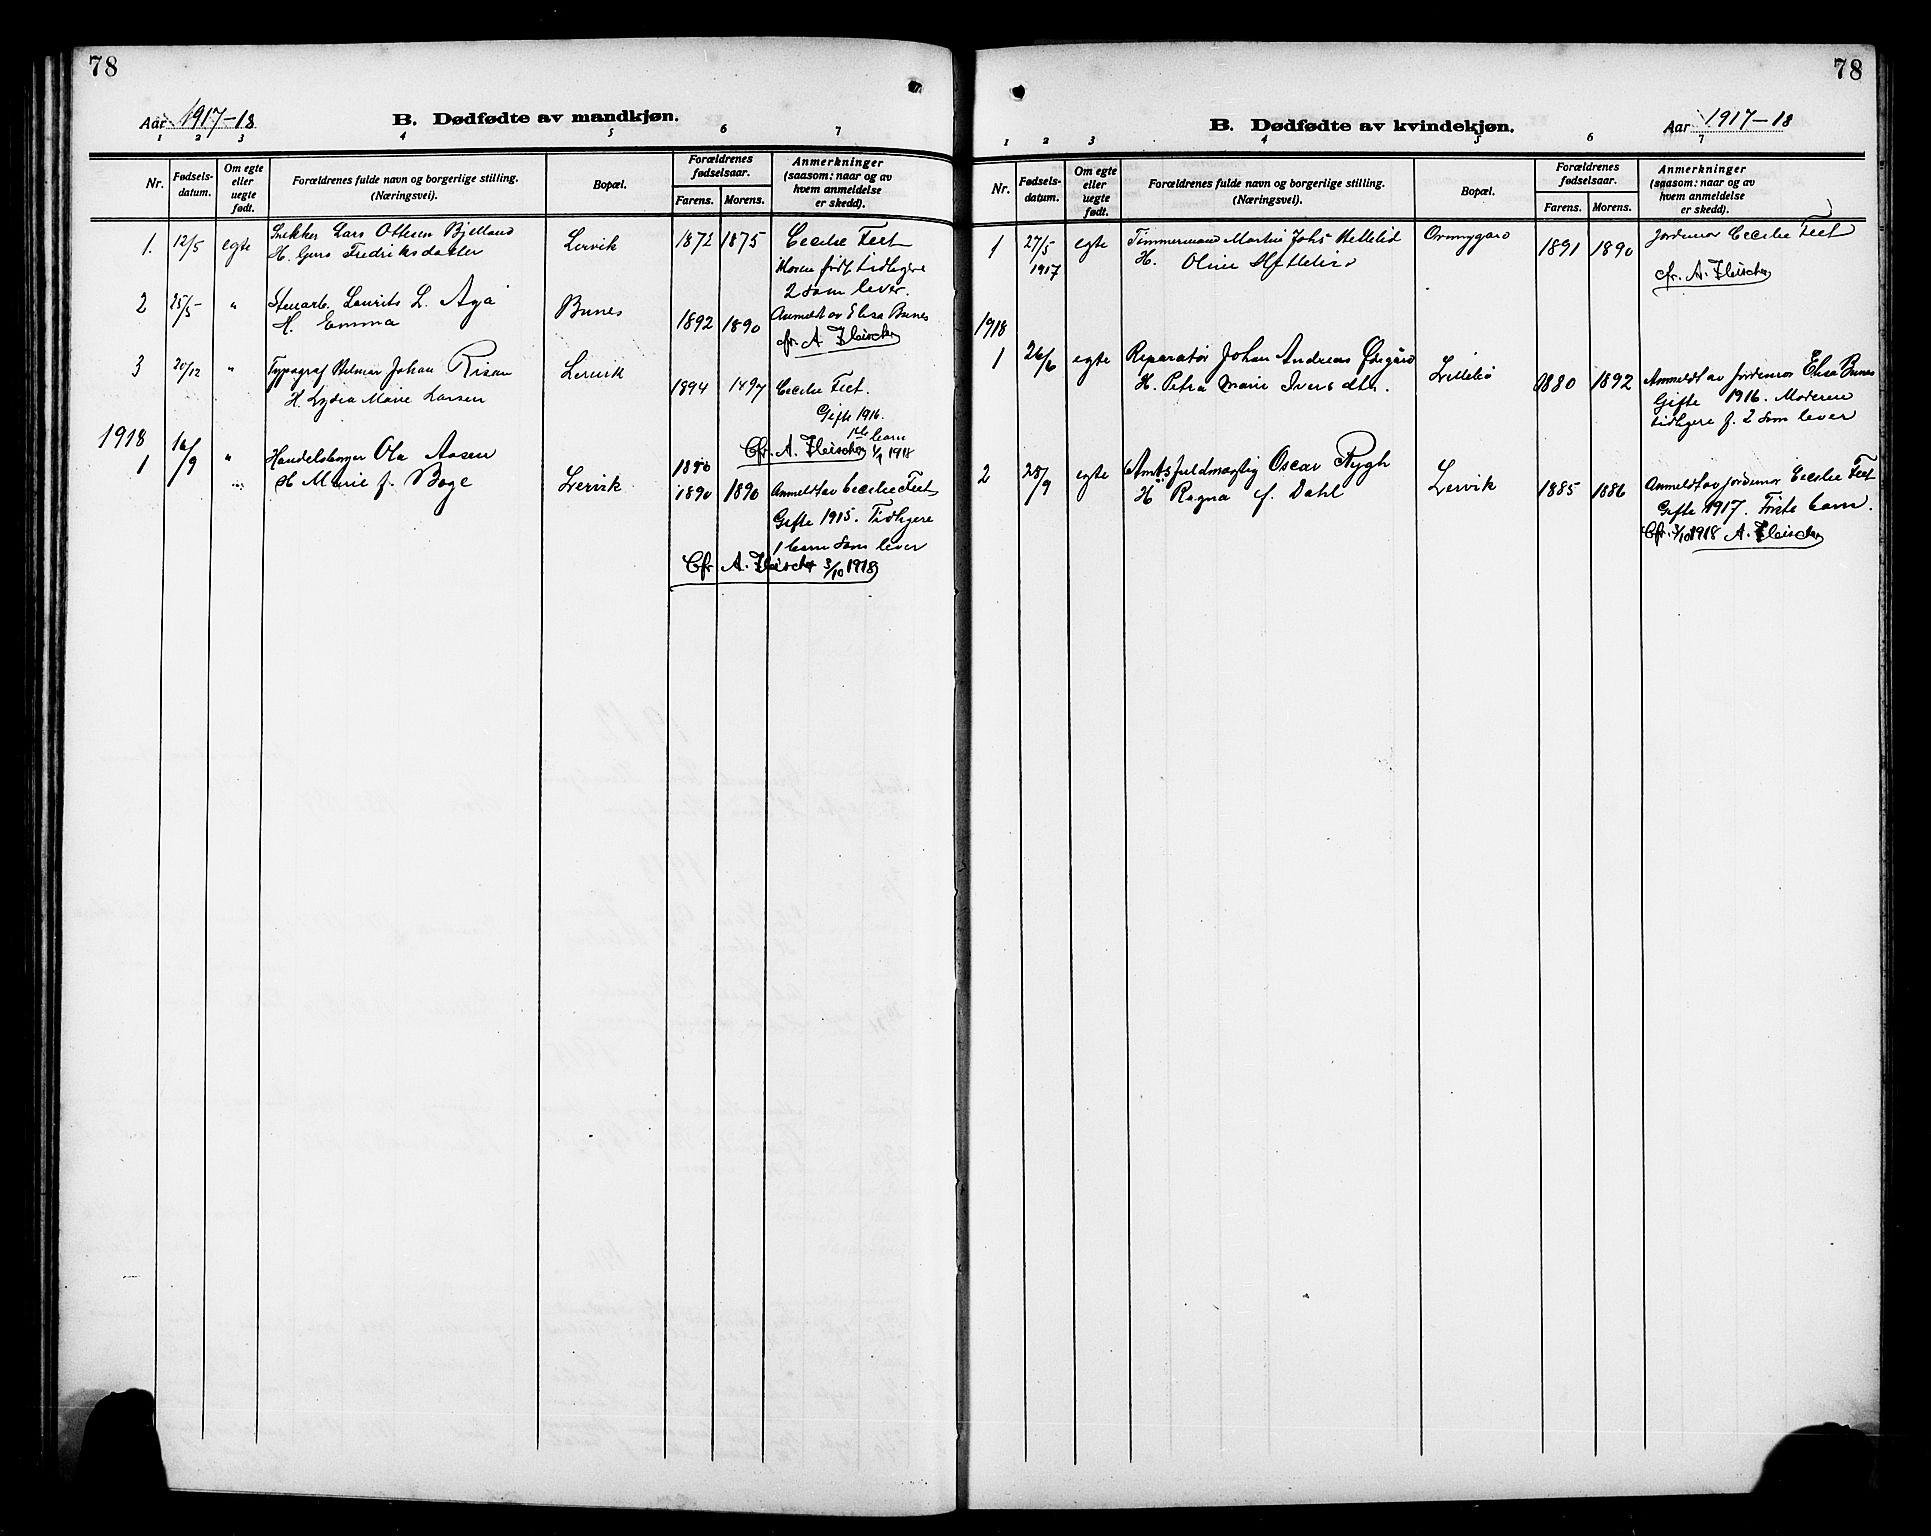 78
Aar 1917-18
B. Dødfødte av mandkjøn.
1 2 3 4 5 6 7
Nr.
Fødsels-datum.
Om egte eller uegte født.
Forældrenes fulde navn og borgerlige stilling. (Næringsvei).
Bopæl.
Forældrenes fødselsaar.
Farens. Morens.
Anmerkninger (saasom: naar og av hvem anmeldelse er skedd).
1. 12/5 egte Snekker Lars Ottesen Bjelland Lervik 1872 1875 Cecilie Feet
H. Guro Fredriksdatter
Moren født tidligere
2 som lever.
2 25/5 " Stenarb. Laurits L. Aga Bunes 1892 1890 Anmeldt av Elisa Bunes
H. Emma
cfr. A Fleischer
3 20/12 " Typograf Johan Risan Lervik 1894 1497 Cecilie Feet.
H. Lydia Marie Larsen
Gifte 1916.
1ste barn
Cfr. A. Fleischer 1/1 1918
1918
1 16/9 " Handelsborger Ola Aasen Lervik 1890 1890 Anmeldt av Cecilie Feet
H Marie f. Boge
Gifte 1915. Tidligere
1 barn som lever
Cfr. A. Fleischer 3/10 1918
78
B. Dødfødte av kvindekjøn.
Aar 1917-18
1 2 3 4 5 6 7
Nr.
Fødsels-datum.
Om egte eller uegte født.
Forældrenes fulde navn og borgerlige stilling. (Næringsvei).
Bopæl.
Forældrenes fødselsaar.
Farens. Morens.
Anmerkninger (saasom: naar og av hvem anmeldelse er skedd).
1 27/5 egte Timmermand Martin Johs Hettelid 1891 1890 Jordmor Cecilie Feet
1917 H. Oline
cfr. A. Fleischer
1918
1 26/6 egte Reparatør Johan Andreas Ødegård Littlebø 1880 1892 Anmeldt av Jordmor Elisa Bunes
H. Petra Marie Iversdtr.
Gifte 1916. Moderen
tidligere f. 2 som lever
2 28/9 egte Amtsfuldmægtig Oscar Rygh Lervik 1885 1886 Anmeldt av Jordmor Cecilie Feet
H Ragna f. Dahl
Gifte 1917. Første barn.
Cfr. 3/10 1918 A. Fleischer